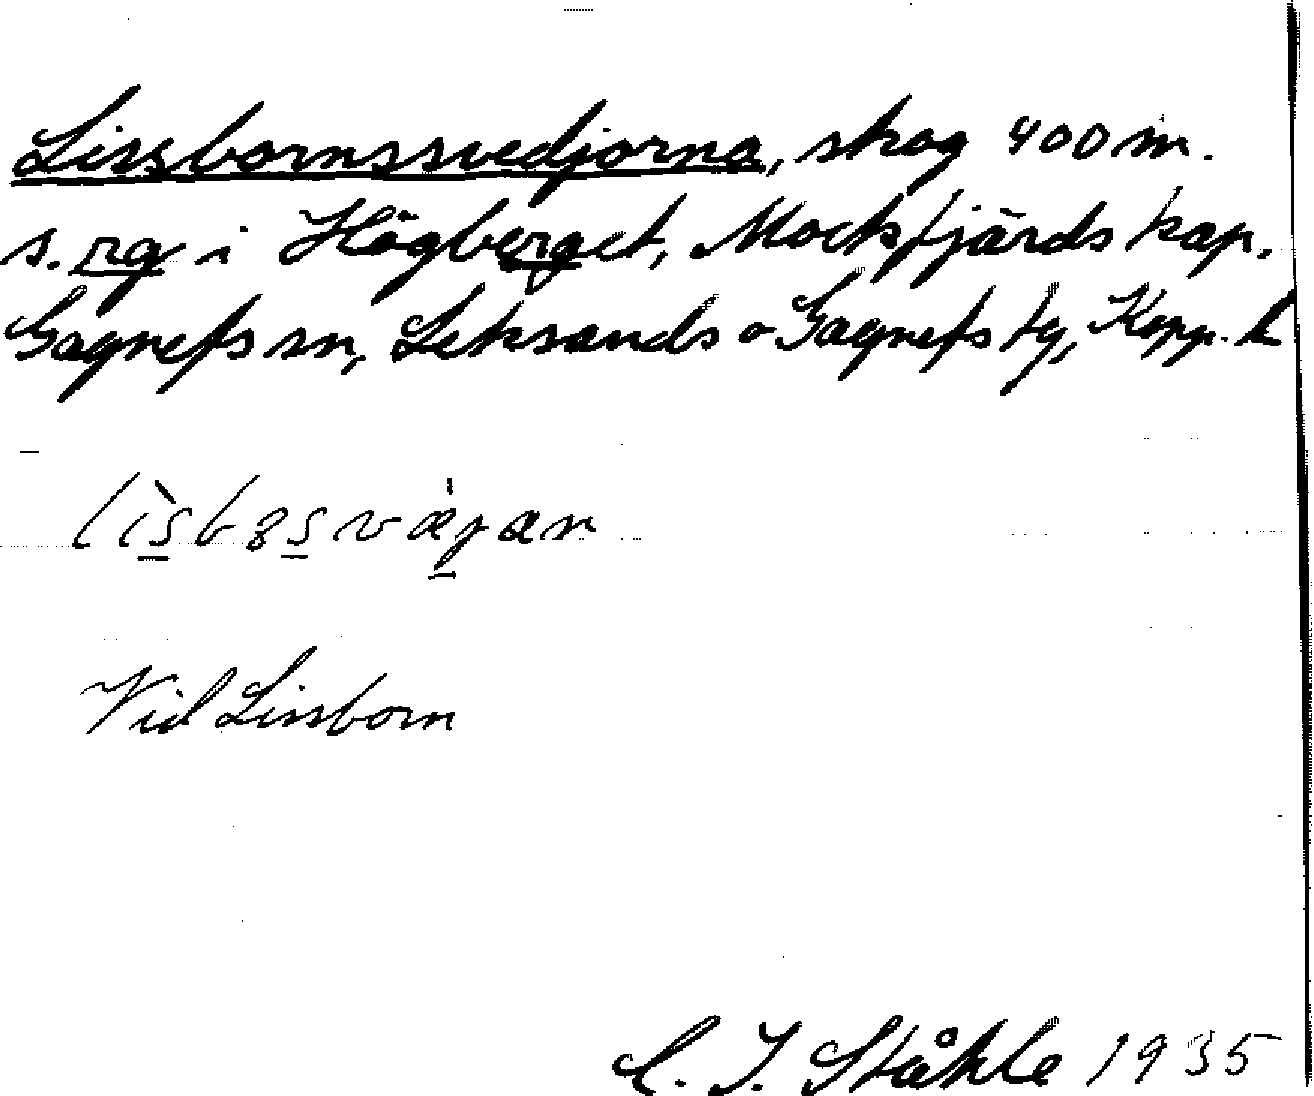 Lissbornssvedjorna, skog 400 m.
s. rg i Högberget, Mockfjärds kap.
Gagnefs sn, Leksands o Gagnefs tg, Kopp. l
Vid Lissborn
C. I. Ståhle 1935